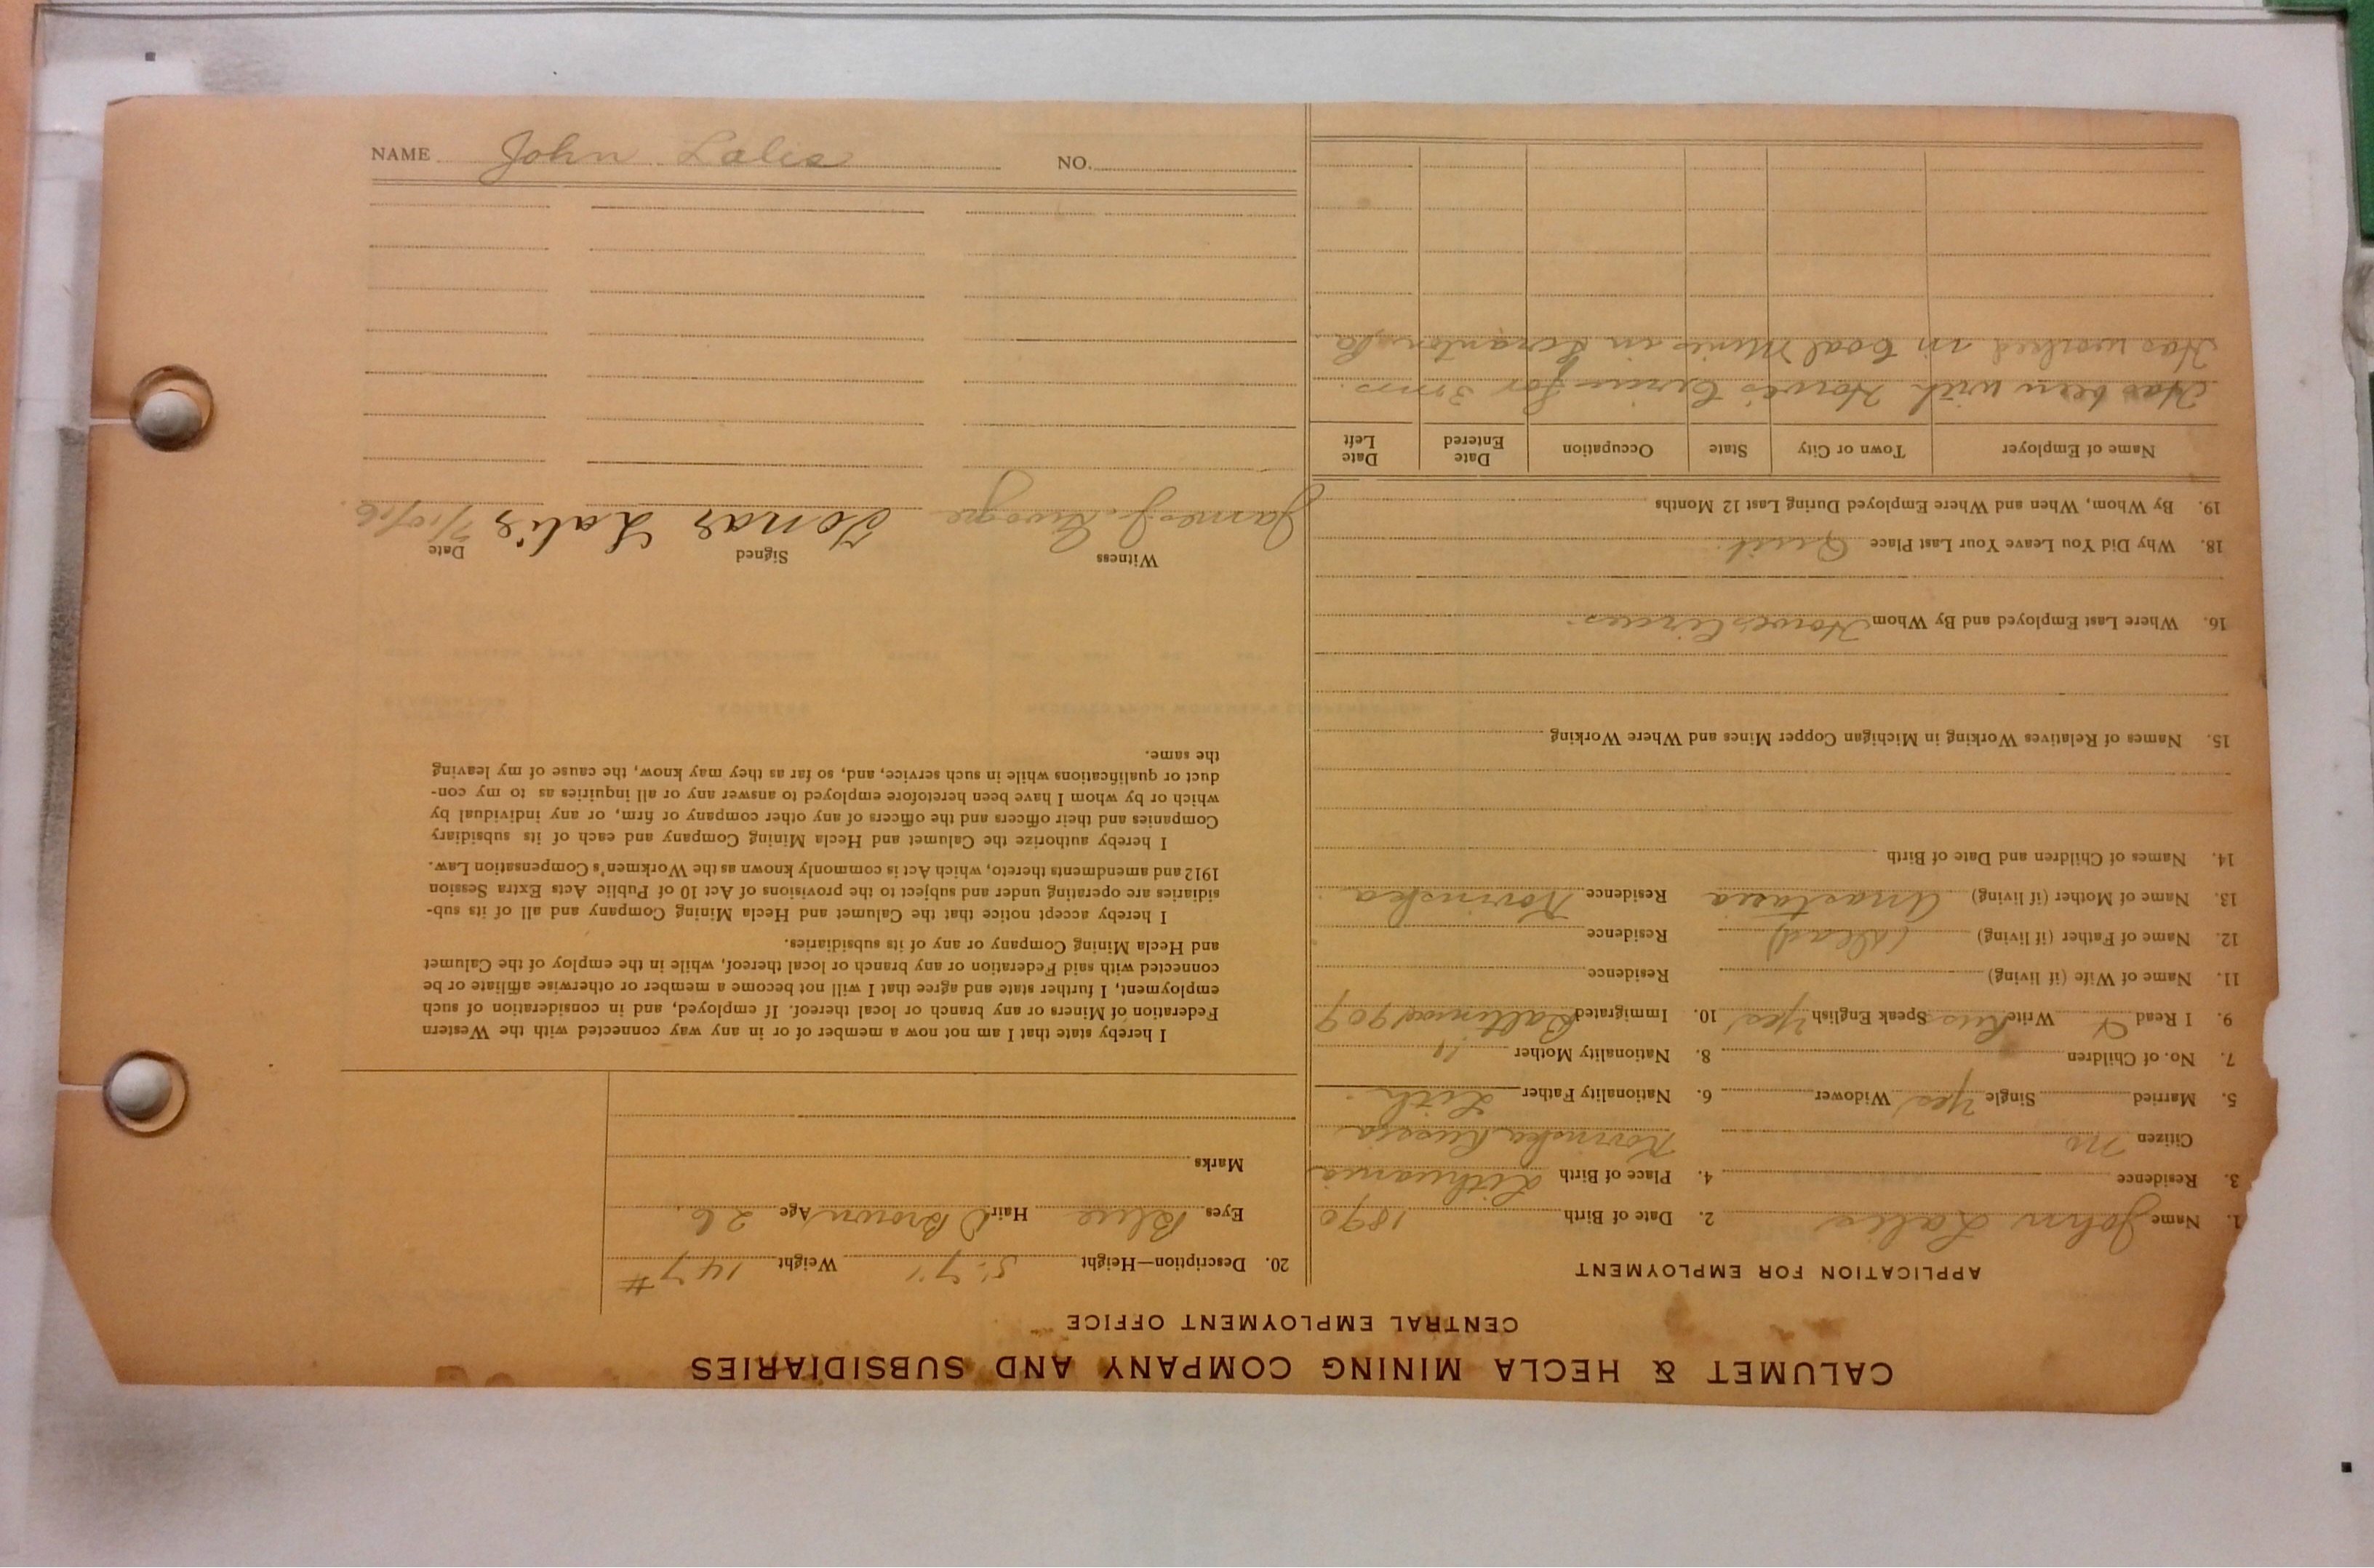 CALUMET & HECLA MINING COMPANY AND SUBSIDIARIES
CENTRAL EMPLOYMENT OFFICE
APPLICATION FOR EMPLOYMENT
1. Name John Lalis 2. Date of Birth 1890
3. Residence 4. Place of Birth Lithuania
Citizen no Kovinska Russia
5. Married Single Yes Widower 6. Nationality Father Lith.
7. No. of Children 8. Nationality Mother "
9. I Read Write Russ Speak English Yes 10. Immigrated Baltimore 1909
11. Name of Wife (if living) Residence
12. Name of Father (if living) (Dead) Residence
13. Name of Mother (if living) Anastasia Residence Kovinska
14. Names of Children and Date of Birth
15. Names of Relatives Working in Michigan Copper Mines and Where Working
16. Where Last Employed and By Whom Howe's Circus.
18. Why Did You Leave Your Last Place Quit.
19. By Whom, When and Where Employed During Last 12 Months
Name of Employer Town or City State Occupation Date Entered Date Left
Has been with Howe's Circus for 3 mos.
Has worked in Coal Mines in Scranton Pa.
20. Description—Height 5' 7" Weight 147 #
Eyes Blue Hair Brown Age 26.
Marks
I hereby state that I am not now a member of or in any way connected with the Western
Federation of Miners or any branch or local thereof. If employed, and in consideration of such
employment, I further state and agree that I will not become a member or otherwise affiliate or be
connected with said Federation or any branch or local thereof, while in the employ of the Calumet
and Hecla Mining Company or any of its subsidiaries.
I hereby accept notice that the Calumet and Hecla Mining Company and all of its sub-
sidiaries are operating under and subject to the provisions of Act 10 of Public Acts Extra Session
1912 and amendments thereto, which Act is commonly known as the Workmen's Compensation Law.
I hereby authorize the Calumet and Hecla Mining Company and each of its subsidiary
Companies and their officers and the officers of any other company or firm, or any individual by
which or by whom I have been heretofore employed to answer any or all inquiries as to my con-
duct or qualifications while in such service, and, so far as they may know, the cause of my leaving
the same.
Witness Signed Date
James J. Jonas Lalis 7/10/16.
NAME John Lalis NO.